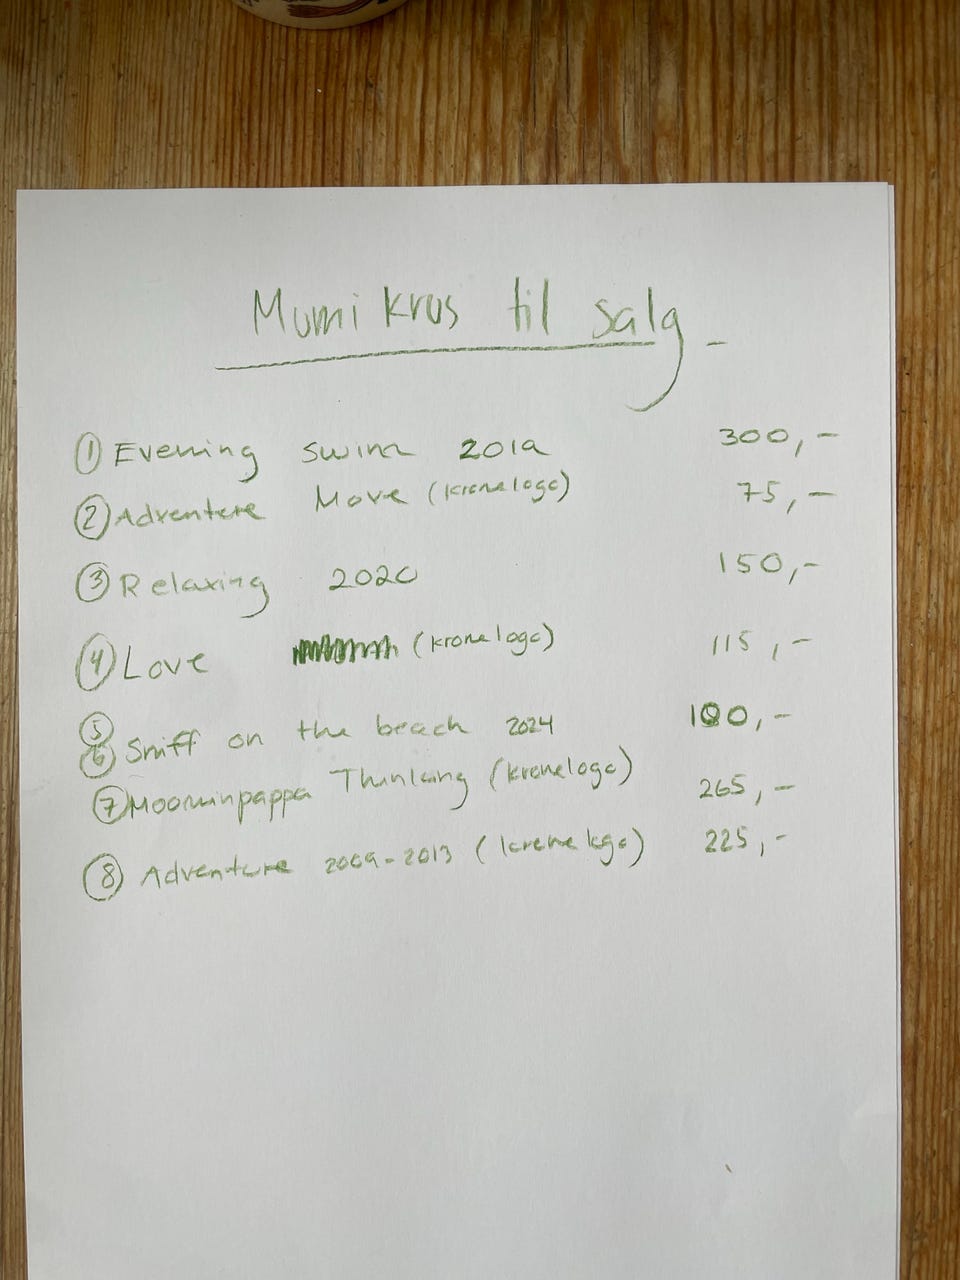 Mumi krus til salg -
① Evening swim 2019 300,-
② Adventure Move (kronelogo) 75,-
③ Relaxing 2020 150,-
④ Love (kronelogo) 115,-
⑤
⑥ Sniff on the beach 2024 100,-
⑦ Moominpappa Thinking (kronelogo) 265,-
⑧ Adventure 2009-2013 (kronelogo) 225,-